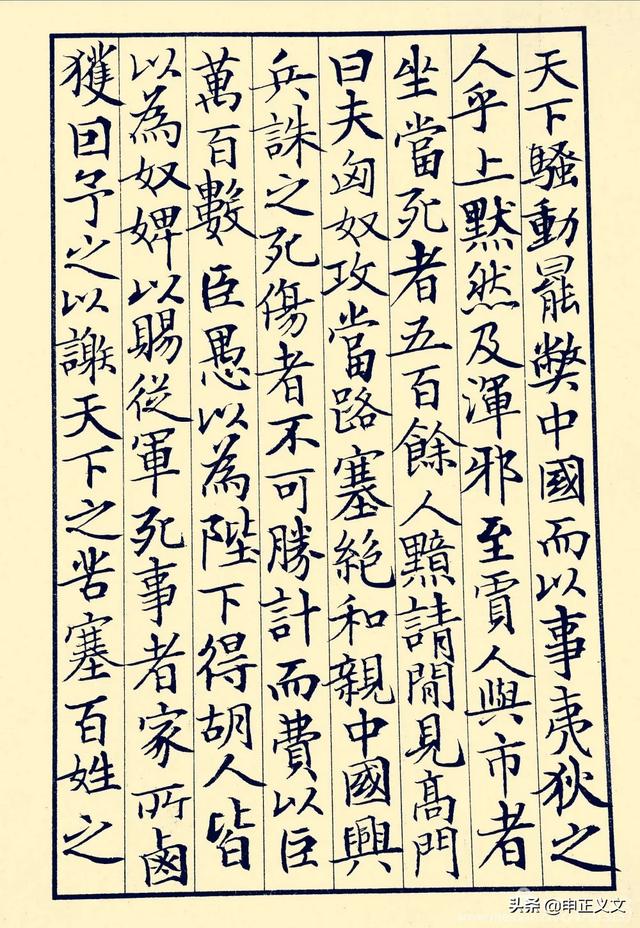 天下騷動罷弊中國而以事夷狄之
人乎上默然及渾邪至賈人與市者
坐當死者五百餘人黯請閒見高門
曰夫匈奴攻當路塞絕和親中國興
兵誅之死傷者不可勝計而費以巨
萬百數臣愚以為陛下得胡人皆
以為奴婢以賜從軍死事者家所鹵
獲因予之以謝天下之苦塞百姓之
头条 @申正义文